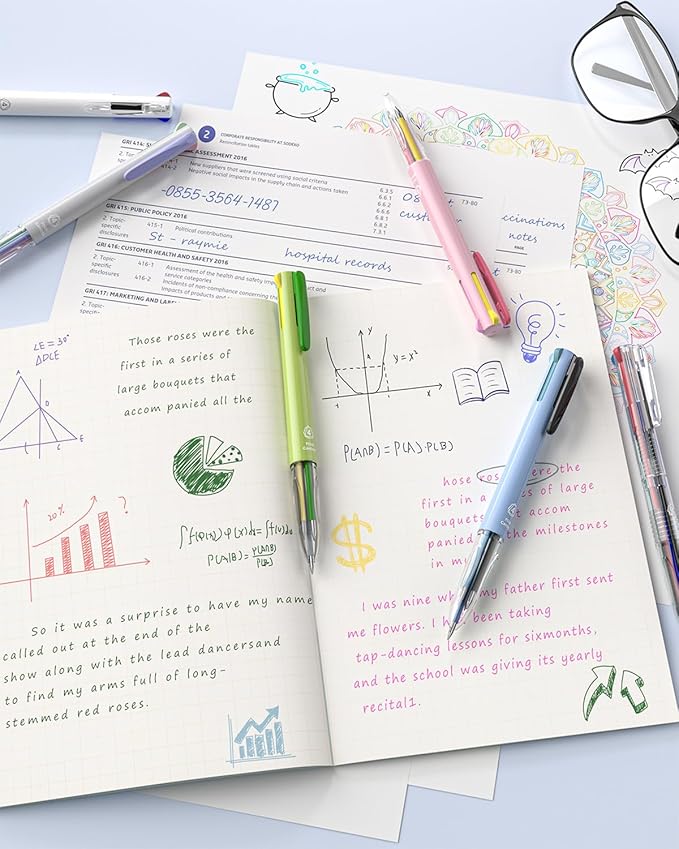 2 CORPORATE RESPONSIBILITY AT SODEXO
Reconciliation tables
GRI 414:
ASSESSMENT 2016
2. Topic-
414-1 New suppliers that were screened using social criteria
specific
414-2 Negative social impacts in the supply chain and actions taken
disclosures
6.3.5
6.6.1
6.6.2
6.6.6
6.8.1
6.8.2
7.3.1
73-80
-0855-3564-1487
GRI 415: PUBLIC POLICY 2016
2. Topic-
415-1 Political contributions
specific
disclosures
St - raymie
hospital records
ccinations
notes
PAGE
GRI 416: CUSTOMER HEALTH AND SAFETY 2016
2. Topic-
416-1 Assessment of the health and safety
specific
service categories
disclosures
416-2 Incidents of non-compliance concerning the
Impacts of products and
73-80
GRI 417: MARKETING AND
2. Topic-
specific
∠E = 30°
ΔDLE
D
E
C
Those roses were the
first in a series of
large bouquets that
accom panied all the
20%
?
P(A|B) = P(A∩B)/P(B)
So it was a surprise to have my name
called out at the end of the
show along with the lead dancersand
to find my arms full of long-
stemmed red roses.
y
y = x²
x
P(A∩B)=P(A).P(B)
$
hose the
first in a of large
accom
the milestones
in
I was nine my father first sent
me flowers. I been taking
tap-dancing lessons for sixmonths,
and the school was giving its yearly
recital1.